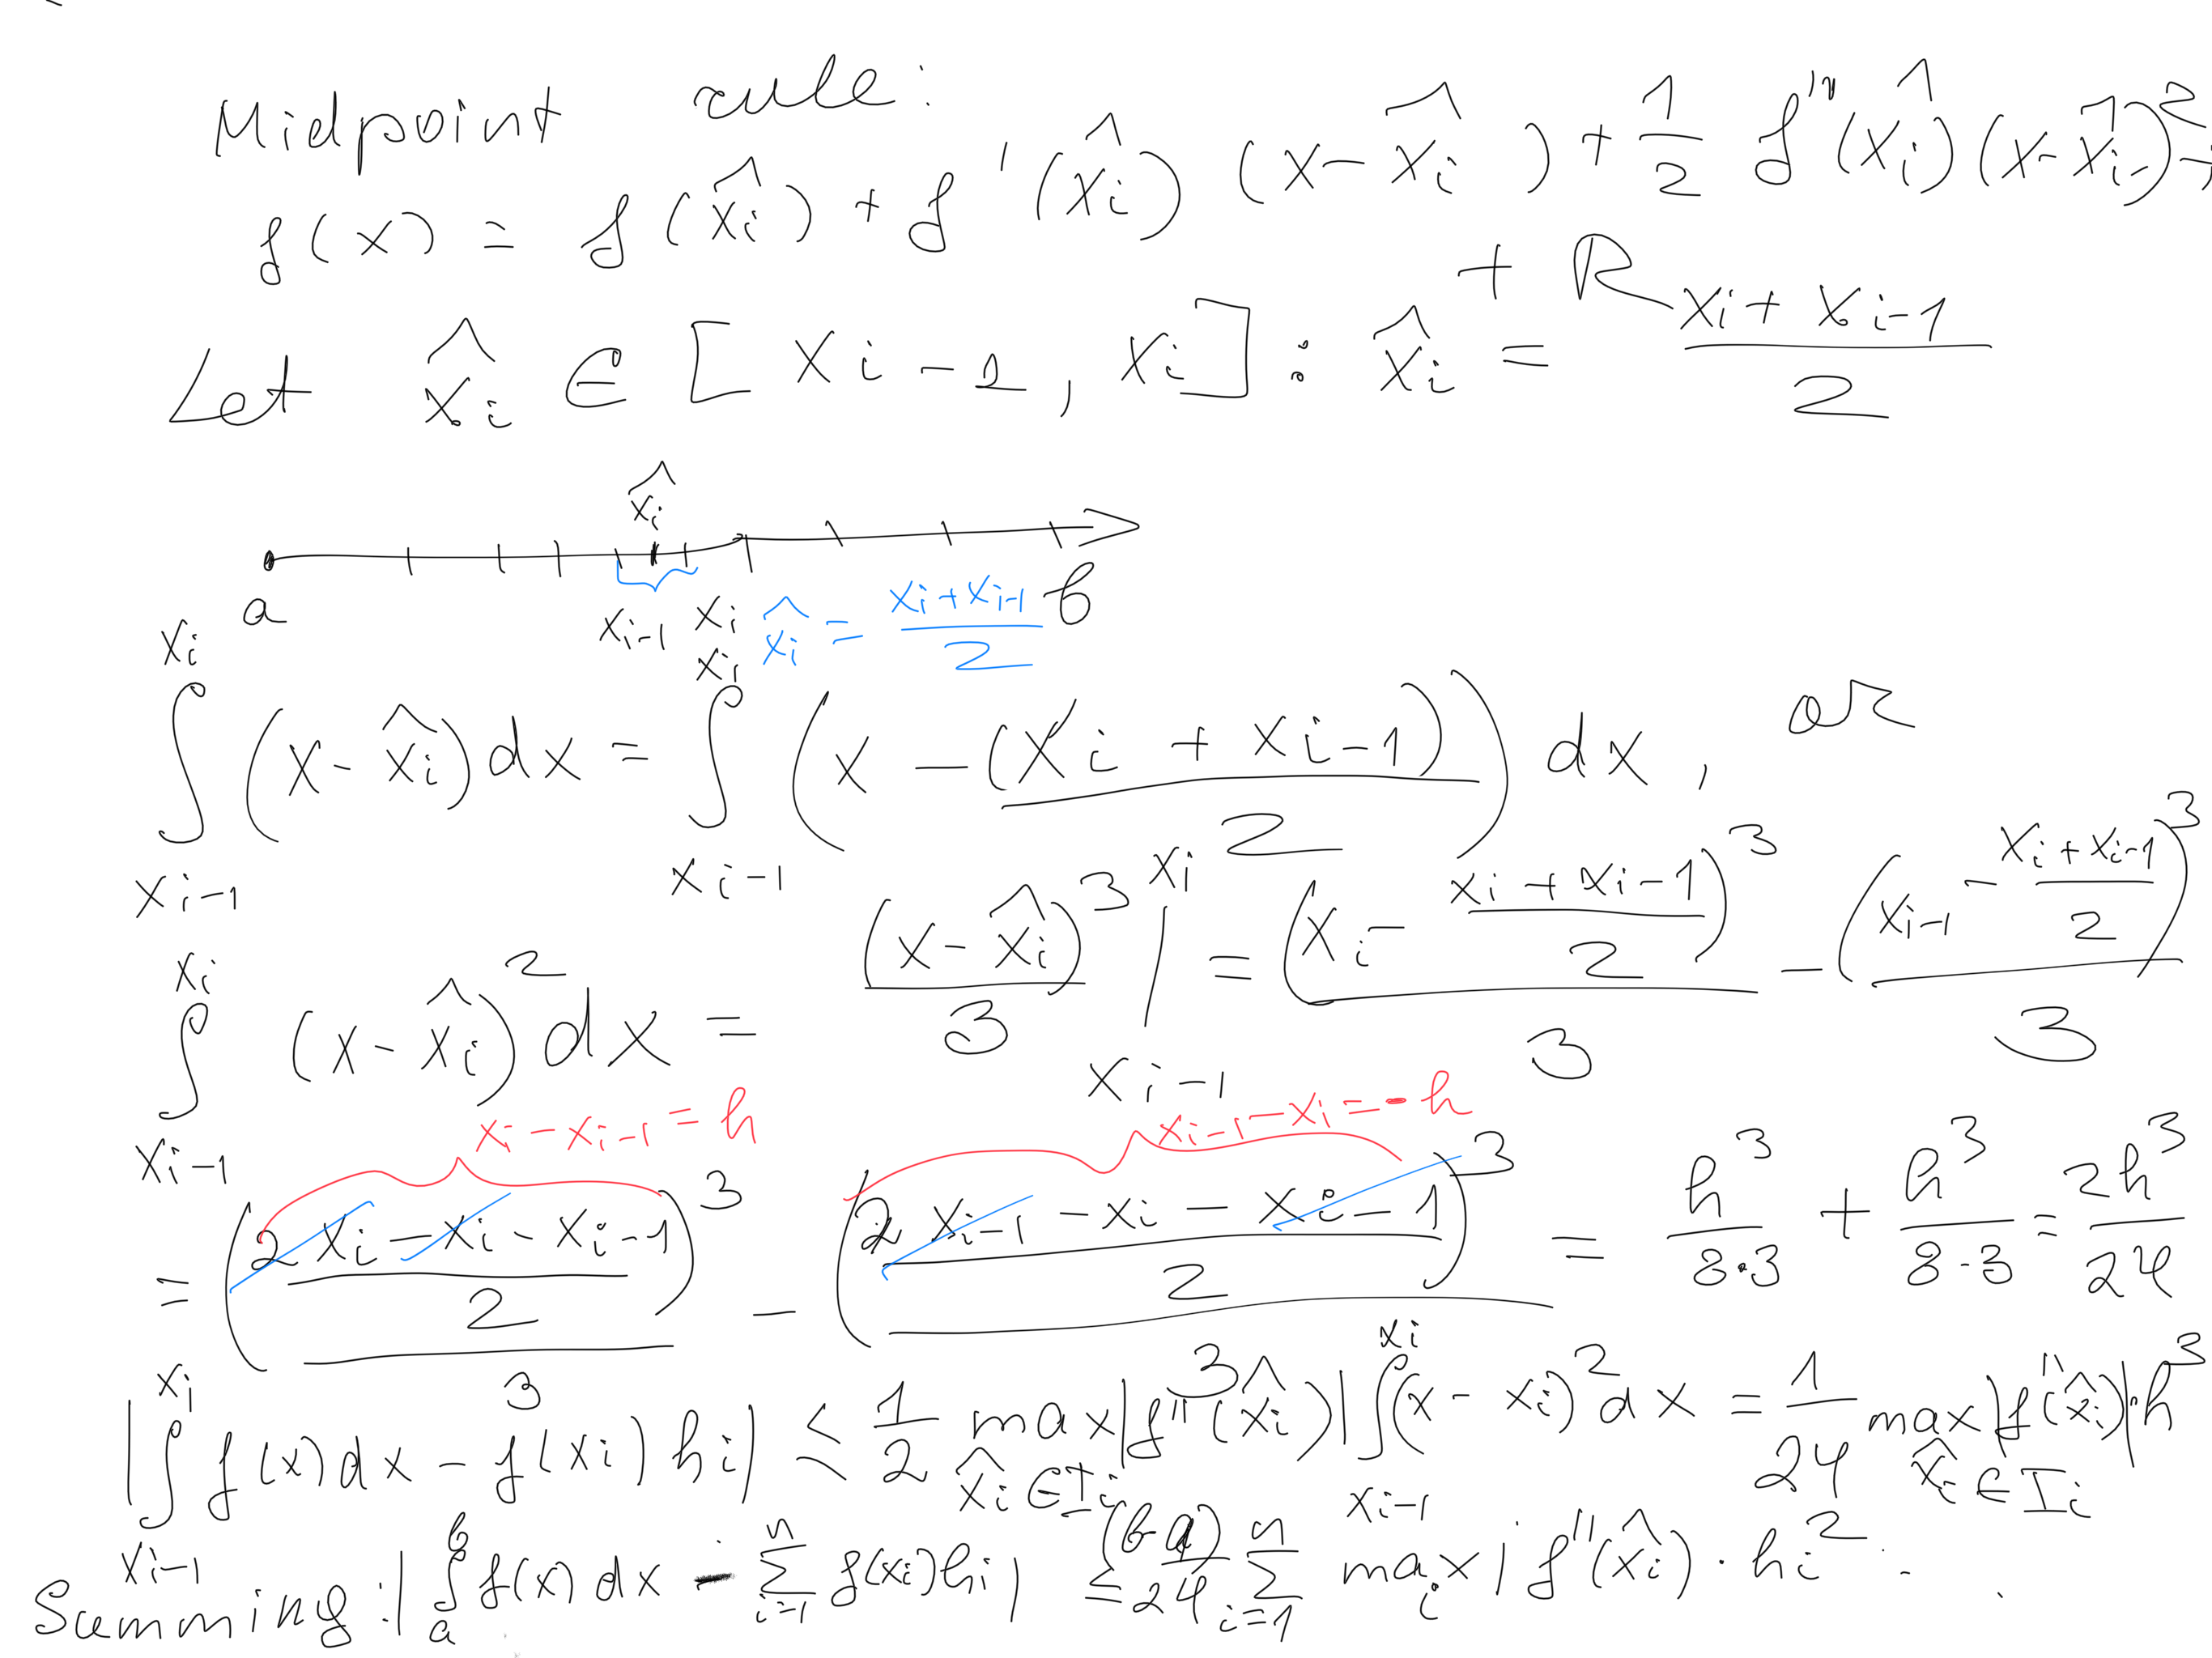 Midpoint rule:
f(x) = f(x̂ᵢ) + f'(x̂ᵢ) (x - x̂ᵢ) + 1/2 f''(x̂ᵢ)(x - x̂ᵢ)² +
+ R
Let x̂ᵢ ∈ [xᵢ₋₁, xᵢ] : x̂ᵢ = (xᵢ + xᵢ₋₁)/2
x̂ᵢ
a xᵢ₋₁ xᵢ x̂ᵢ = (xᵢ + xᵢ₋₁)/2 b
∫_{xᵢ₋₁}^{xᵢ} (x - x̂ᵢ) dx = ∫_{xᵢ₋₁}^{xᵢ} (x - (xᵢ + xᵢ₋₁)/2) dx, or
∫_{xᵢ₋₁}^{xᵢ} (x - x̂ᵢ)² dx = (x - x̂ᵢ)³/3 |_{xᵢ₋₁}^{xᵢ} = (xᵢ - (xᵢ + xᵢ₋₁)/2)³/3 - (xᵢ₋₁ - (xᵢ + xᵢ₋₁)/2)³/3
xᵢ - xᵢ₋₁ = h xᵢ₋₁ - xᵢ = -h
= ((2xᵢ - xᵢ - xᵢ₋₁)/2)³/3 - ((2xᵢ₋₁ - xᵢ - xᵢ₋₁)/2)³/3 = h³/(8·3) + h³/(8·3) = 2h³/24
|∫_{xᵢ₋₁}^{xᵢ} f(x)dx - f(xᵢ)hᵢ| ≤ 1/2 max_{x̂ᵢ∈Iᵢ} |f''(x̂ᵢ)| ∫_{xᵢ₋₁}^{xᵢ} (x - xᵢ)² dx = 1/24 max_{x̂ᵢ∈Iᵢ} |f''(x̂ᵢ)|·h³
Summing: |∫_a^b f(x)dx - Σ_{i=1}^n f(xᵢ)hᵢ| ≤ (b-a)/24 Σ_{i=1}^n max_i |f''(x̂ᵢ)·hᵢ².